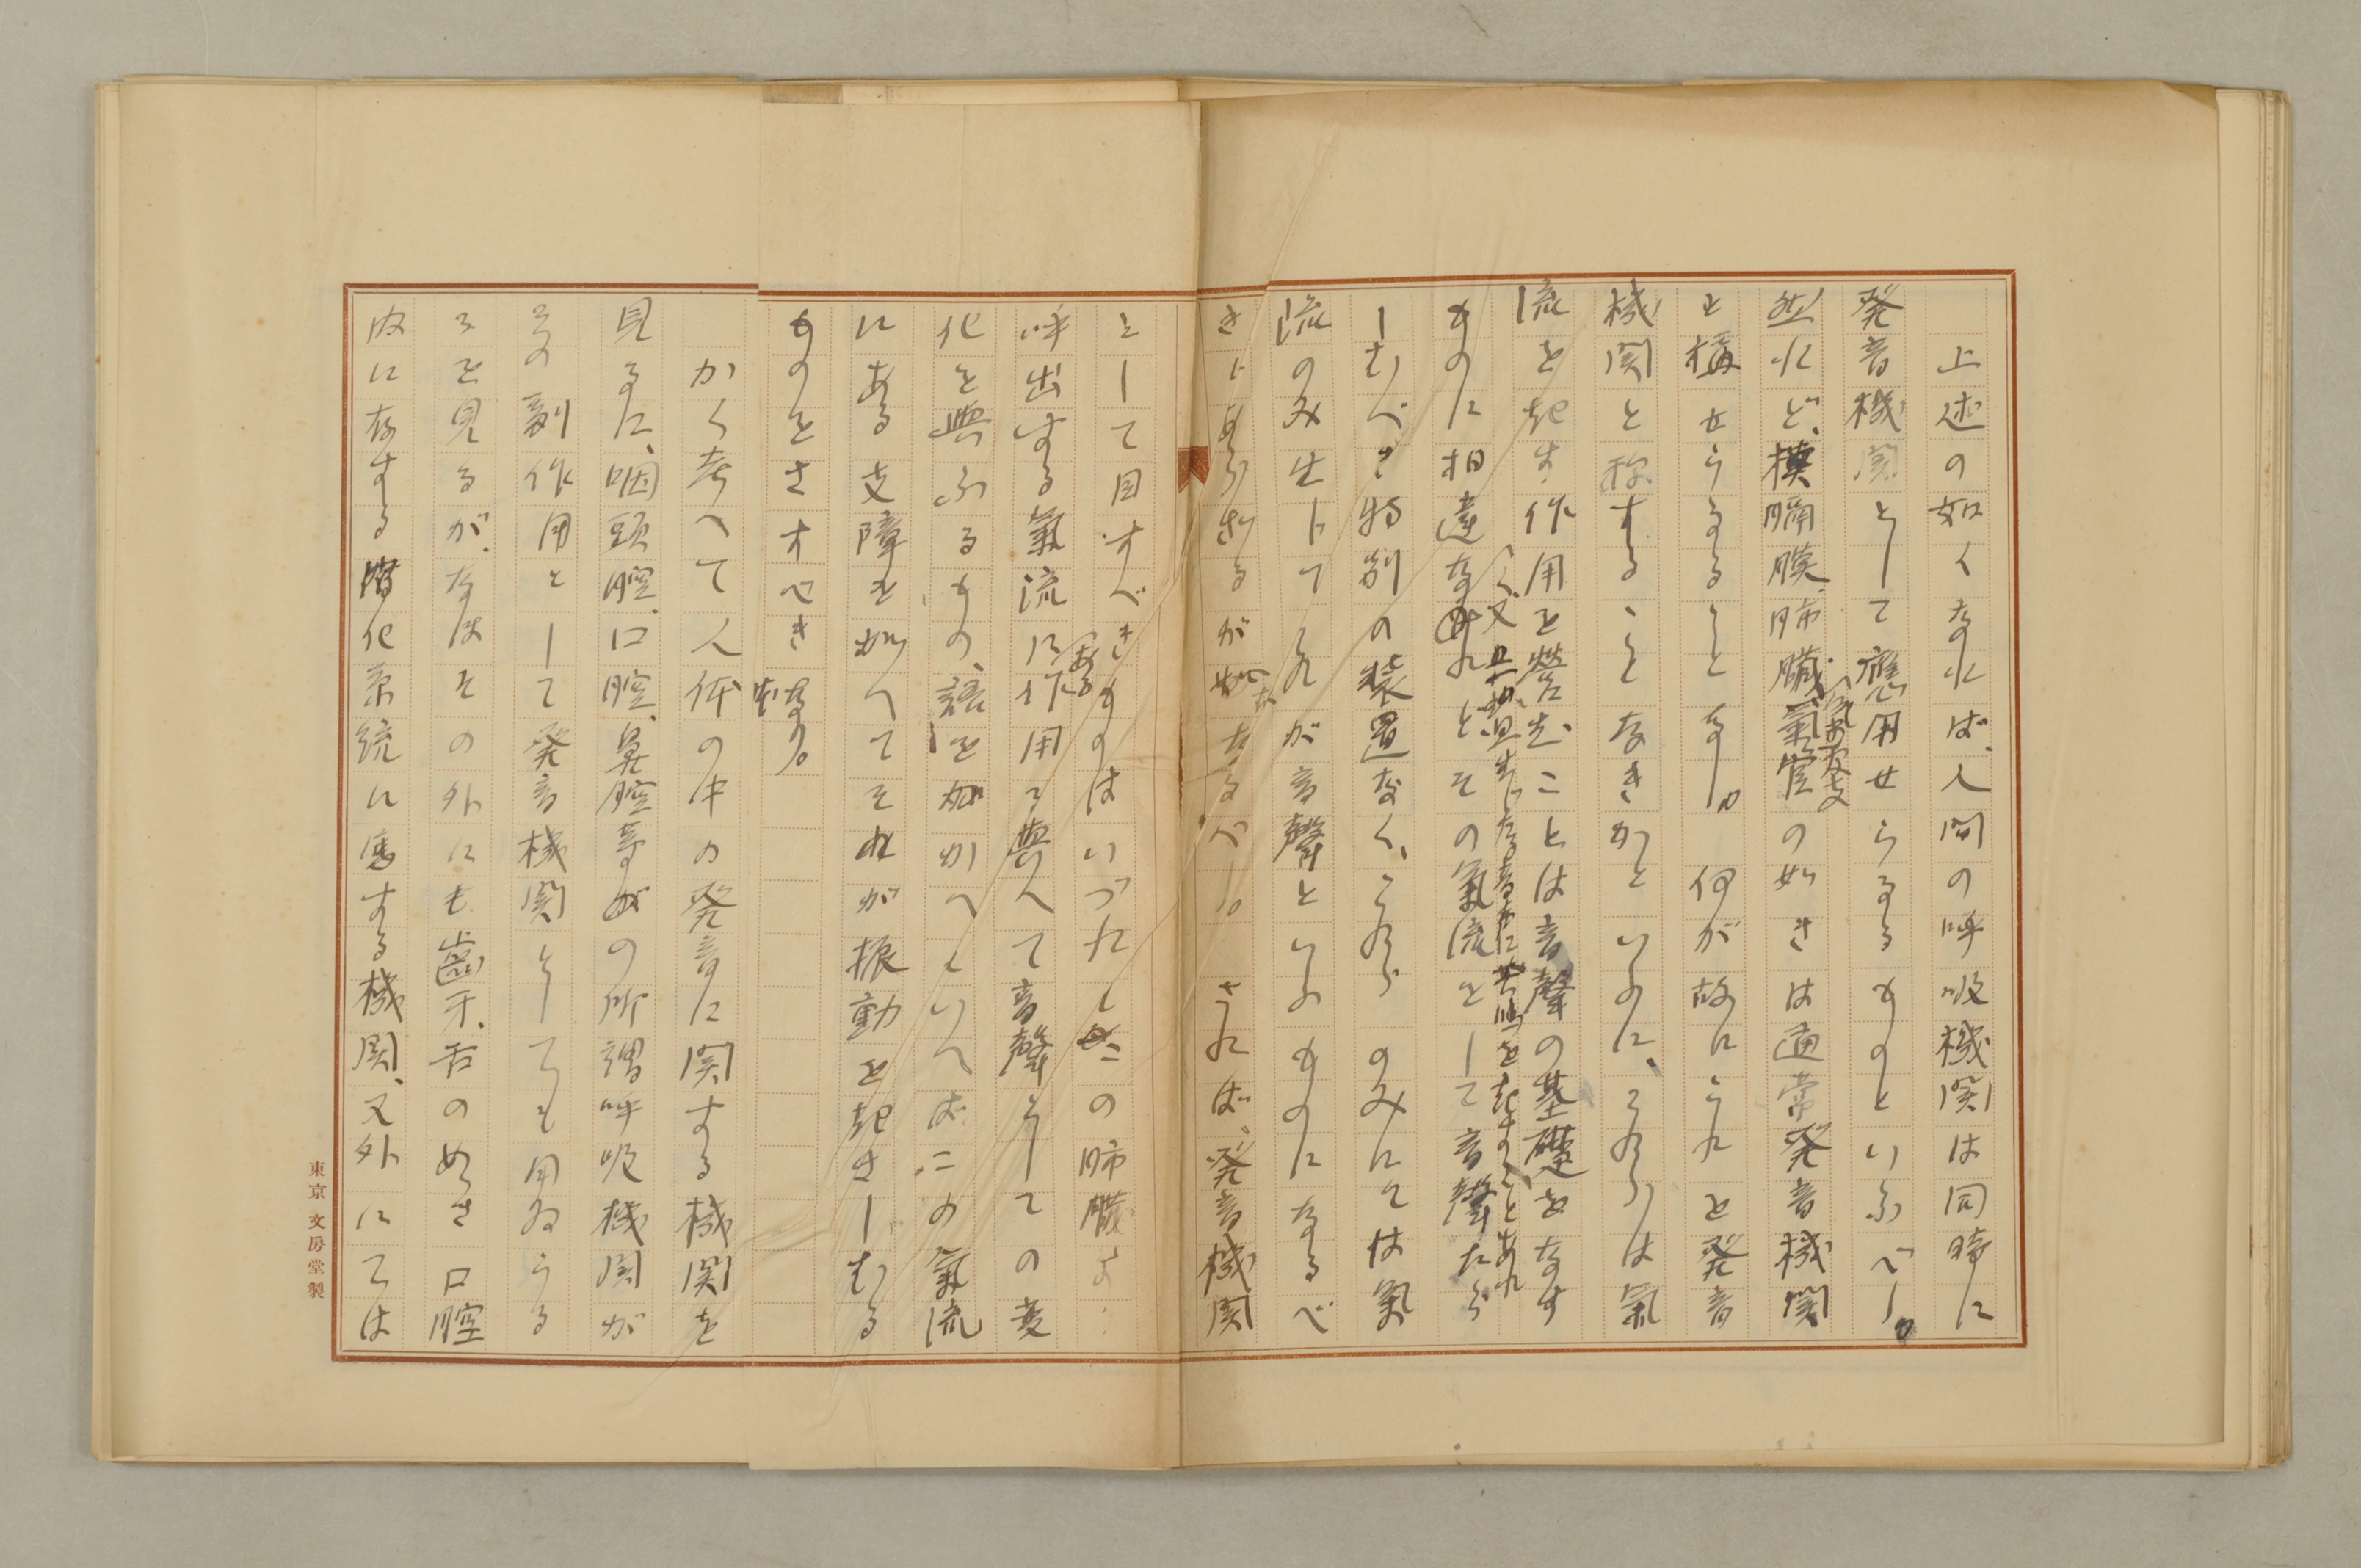 上述の如くなれば、人間の呼吸機関は同時に
発音機関として應用せらるるものといふべし。
然れど、横膈膜、肺臓、氣管の如きは通常発音機関
と称せらるることなし。何が故にこれを発音
機関と称することなきかといふに、これらは氣
流を起す作用を營むことは音聲の基礎をなす
ものに相違なけれどその氣流をして音聲たら
しむべき特別の装置なく、これらのみにては氣
流のみ生じてこれが音聲といふものになるべ
きにあらざるが如くなるべし。されば、発音機関
として目すべきものはいづれもこの肺臓より
呼出する氣流に或作用を與へて音聲としての変
化を與ふるもの、語をかへていへばこの氣流
にある支障を加へてそれが振動を起さしむる
ものをさすべきなり。
かく考へて人体の中の発音に関する機関を
見るに、咽頭腔、口腔、鼻腔等の所謂呼吸機関が
その副作用として発音機関としても用ゐらる
るを見るが、なほその外にも歯牙、舌の如き口腔
内に存する消化系統に属する機関、又外にては
東京 文房堂製